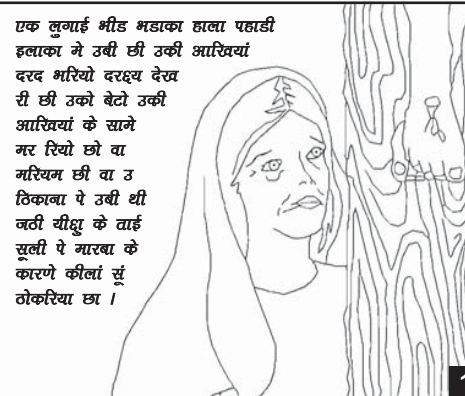 एक लुगाई भीड भडाका हाला पहाडी
इलाका मे उबी छी उकी आखियां
दरद भरियो दरक्ष्य देख
री छी उको बेटो उकी
आखियां के सामे
मर रियो छो वा
मरियम छी वा उ
ठिकाना पे उबी थी
जठी यीक्षु के ताई
सूली पे मारबा के
कारणे कीलां सूं
ठोकरिया छा ।